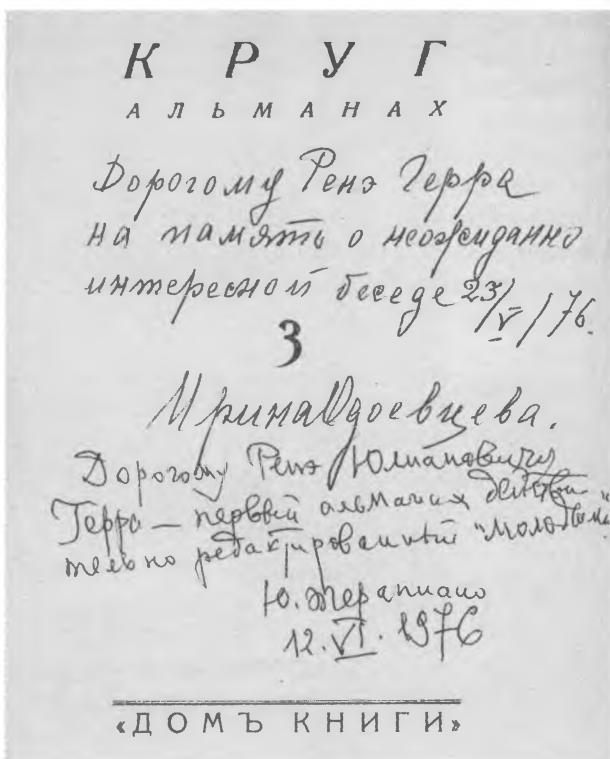 КРУГ
АЛЬМАНАХ
Дорогому Ренэ Герра
на память о неожиданно
интересной беседе 23/V/76.
3
Ирина Одоевцева.
Дорогому Ренэ Юлиановичу
Герра — первый альманах действи-
тельно редактированный "молодыми"
Ю. Терапиано
12. VI. 1976
«ДОМЪ КНИГИ»